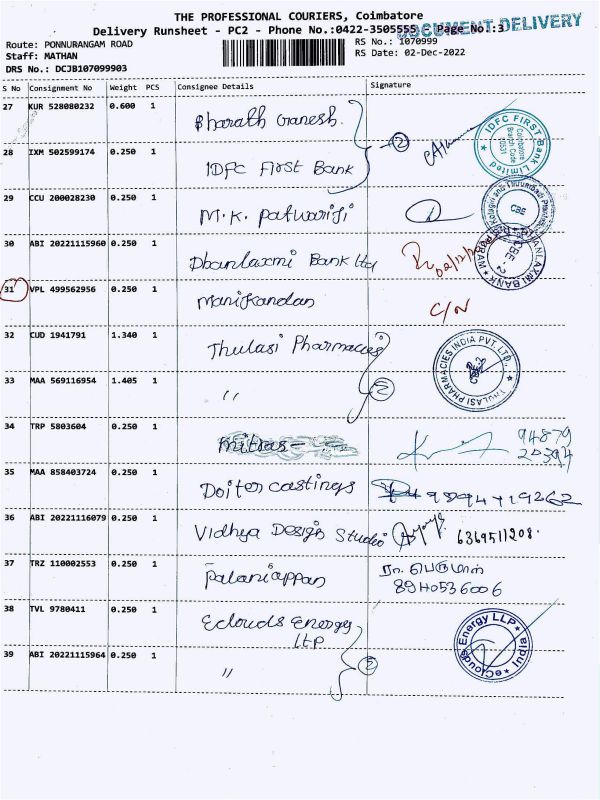 THE PROFESSIONAL COURIERS, Coimbatore
DOCUMENT DELIVERY
Delivery Runsheet - PC2 - Phone No.:0422-3505555 Page No.:3
Route: PONNURANGAM ROAD
RS No.: 1070999
Staff: MATHAN
RS Date: 02-Dec-2022
DRS No.: DCJB107099903
S No Consignment No Weight PCS Consignee Details Signature
27 KUR 528080232 0.600 1 Bharath Ganesh.
28 IXM 502599174 0.250 1 IDFC First Bank
2
IDFC FIRST Bank Limited
Coimbatore
Branch Code
29 CCU 200028230 0.250 1 M.K. Patwariji
CBE
30 ABI 20221115960 0.250 1 Dhanlaxmi Bank Ltd
DHANLAXMI BANK
CBE - 2
31 VPL 499562956 0.250 1 Manikandan C/N
32 CUD 1941791 1.340 1 Thulasi Pharmacies
33 MAA 569116954 1.405 1 "
2
THULASI PHARMACIES INDIA PVT. LTD.
34 TRP 5803604 0.250 1 Mitras 94879
20394
35 MAA 858403724 0.250 1 Doiter castings
36 ABI 20221116079 0.250 1 Vidhya Design Studio 6369511208.
37 TRZ 110002553 0.250 1 Palaniappan ரா. பெருமாள்
8940536006
38 TVL 9780411 0.250 1 Eclouds Energy
LLP
39 ABI 20221115964 0.250 1 "
2
eClouds Energy LLP
India